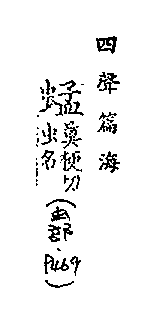 四聲篇海
蜢 莫梗切
虫名
(虫部.P469)